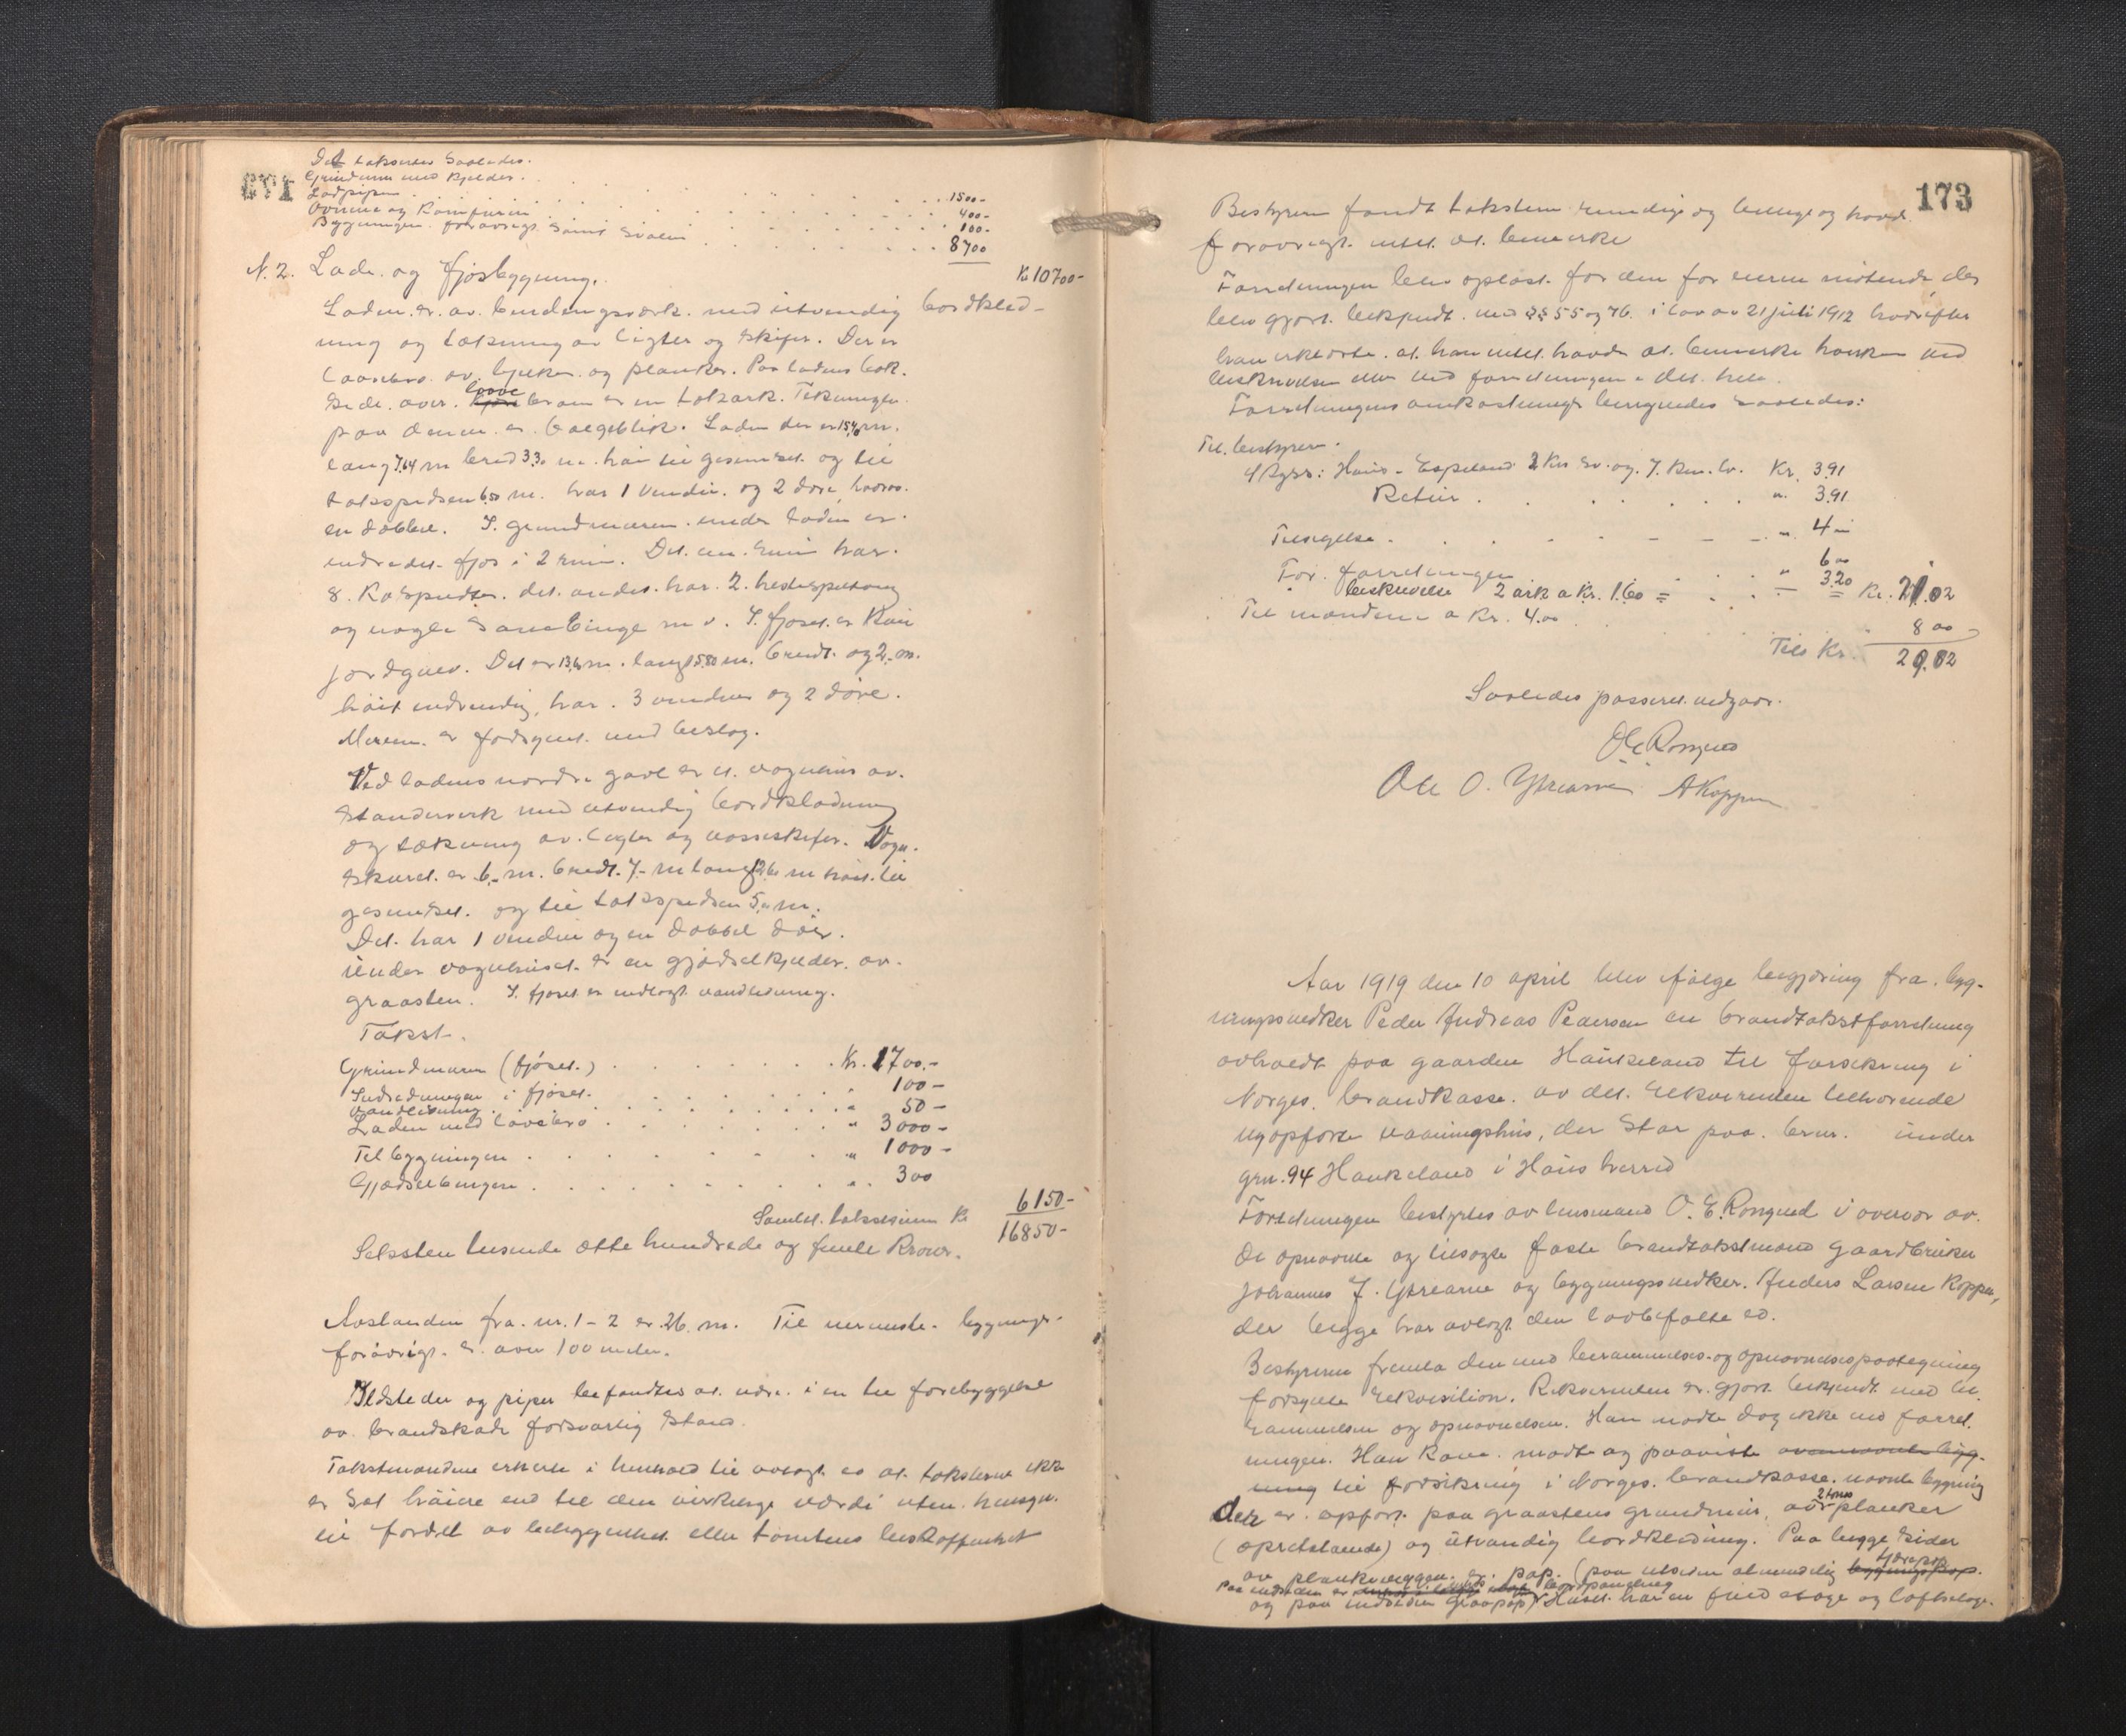 Det takseres saaledes.
Grundmur med kjelder . . . 1500-
Ladpipen . . . 400-
Ovnene og Komfuren . . . 100-
Bygningen forøvrigt samt Svalen . . . 8700
Kr 10700-
N. 2. Lade. og fjøsbygning.
Laden. er. av. bindingsverk. med utvendig bordklæd-
ning og tækning av ligter og skifer. Der er
laavebro av bjelker og planker. Paa ladens bak.
side. over. laave broen er en takark. Tækningen
paa denne er bølgeblik. Laden den er 15,40 m.
lang 7,64 m bred 3,30 m. høi til gesimset. og til
takspidsen 6,50 m. har 1 vindu. og 2 døre, hvorav.
en dobbel. I. grundmuren. under laden er.
indredet fjøs i 2 rum. Det. ene. rum har.
8. Ko det. andet. har. 2. hestespiltoug
og nogle Sauebinge m. v. I. fjøset. er Kun
jordgulv. Det er m. langt 5,80 m. bredt. og 2,- m.
høit indvendig, har. 3 vinduer og 2 døre.
Muren. er forsynet. med beslag.
Ved ladens nordre gavl er et. vognhus av.
Standerverk med utvendig bordklædning
og tækning av. ligter og vosseskifer. Vogn.
skuret. er 6,- m. bredt. 7,- m langt m høit. til
gesimset. og til takspidsen 5,- m.
Det. har 1 vindu og en dobbel dør.
Under vognhuset. er en gjødselkjelder. av.
graasten. I. fjøset er indlagt vandledning.
Takst.
Grundmuren (fjøset.) . . . Kr. 1700,-
Indredningen i fjøset. . . . " 100-
Vandledning . . . " 50-
Laden med lavebro . . . " 3000-
Tilbygningen . . . " 1000-
Gjødselbingen . . . " 300
6150-
Samlet. takstsum Kr 16850-
Seksten tusende otte hundrede og femti Kroner.
Avstanden fra. nr. 1-2 er 26 m. Til nermeste. bygninger
forøvrigt. er. over 100 meter.
Ildsteder og piper befandtes at. være. i en til forebyggelse
av. brandskade forsvarlig stand.
Takstmændene erklærte i henhold til avlagt ed at. taksterne ikke
er Sat høiere end til den virkelige værdi uten. hensyn.
til fordel av beliggenhet eller tomtens beskaffenhet
173
Bestyreren fandt taksten rimelige og havde
forøvrigt. intet. at. bemerke
Forretningen blev oplæst. for den for eieren møtende, der
blev gjort. bekjendt. med §§ 55 og 76. i lov av 21 juli 1912 hvorefter
han erklærte. at. han intet. havde at. bemerke hverken ved
beskrivelsen eller ved forretningen i det. hele.
Forretningens omkostninger beregnedes saaledes:
Til. bestyreren.
Haus - Espeland 2 Km sv. og. 7. Km. lv. Kr. 3,91
Retur . . . " 3,91
Tilsigelse . . . " 4 -
For. forretningen . . . " 6 00
" beskrivelse 2 ark a Kr. 1,60 = . . . 3,20 Kr. 21.02
Til mændene a Kr. 4.00 . . . 8 00
Tils Kr. 29.02
Saaledes passeret. vedgaar.
O E Rongved
Ole O. Ytrearne A Koppen
Aar 1919 den 10 april blev ifølge begjæring fra. byg-
ningssnedker Peder Andreas Pedersen en brandtakstforretning
avholdt paa gaarden Haukeland til forsikring i
Norges. brandkasse. av det. rekvirenten tilhørende
nyopførte vaaningshus, der Staar paa. brnr. under
grn. 94 Haukeland i Haus herred
Forretningen bestyrtes av lensmand O. E. Rongved i overvær av.
de opnævnte og tilsagte faste brandtakstmænd gaardbruker
Johannes J. Ytrearne og bygningssnedker. Anders Larsen Koppen,
der begge har avlagt den lovbefalte ed.
Bestyreren fremla den med berammelses- og opnævnelsespaategning
forsynte rekvisition. Rekvirenten er. gjort. bekjendt. med be.
rammelsen og opnævnelsen. Han møtte dog ikke ved forret.
ningen. Hans Kone. møtte og paaviste ovennævnte byg-
ning til forsikring i Norges. brandkasse. nævnte bygning
der er. opført. paa graastens grundmur, av 2 toms planker
(opretstaaende) og utvendig bordklædning. Paa begge Sider
av plankeveggen. er. pap. (paa utsiden almindelig tjærepap
og paa indsiden graapap) Huset. har en fuld etage og loftsetage.
Paa indsiden er bordpanel